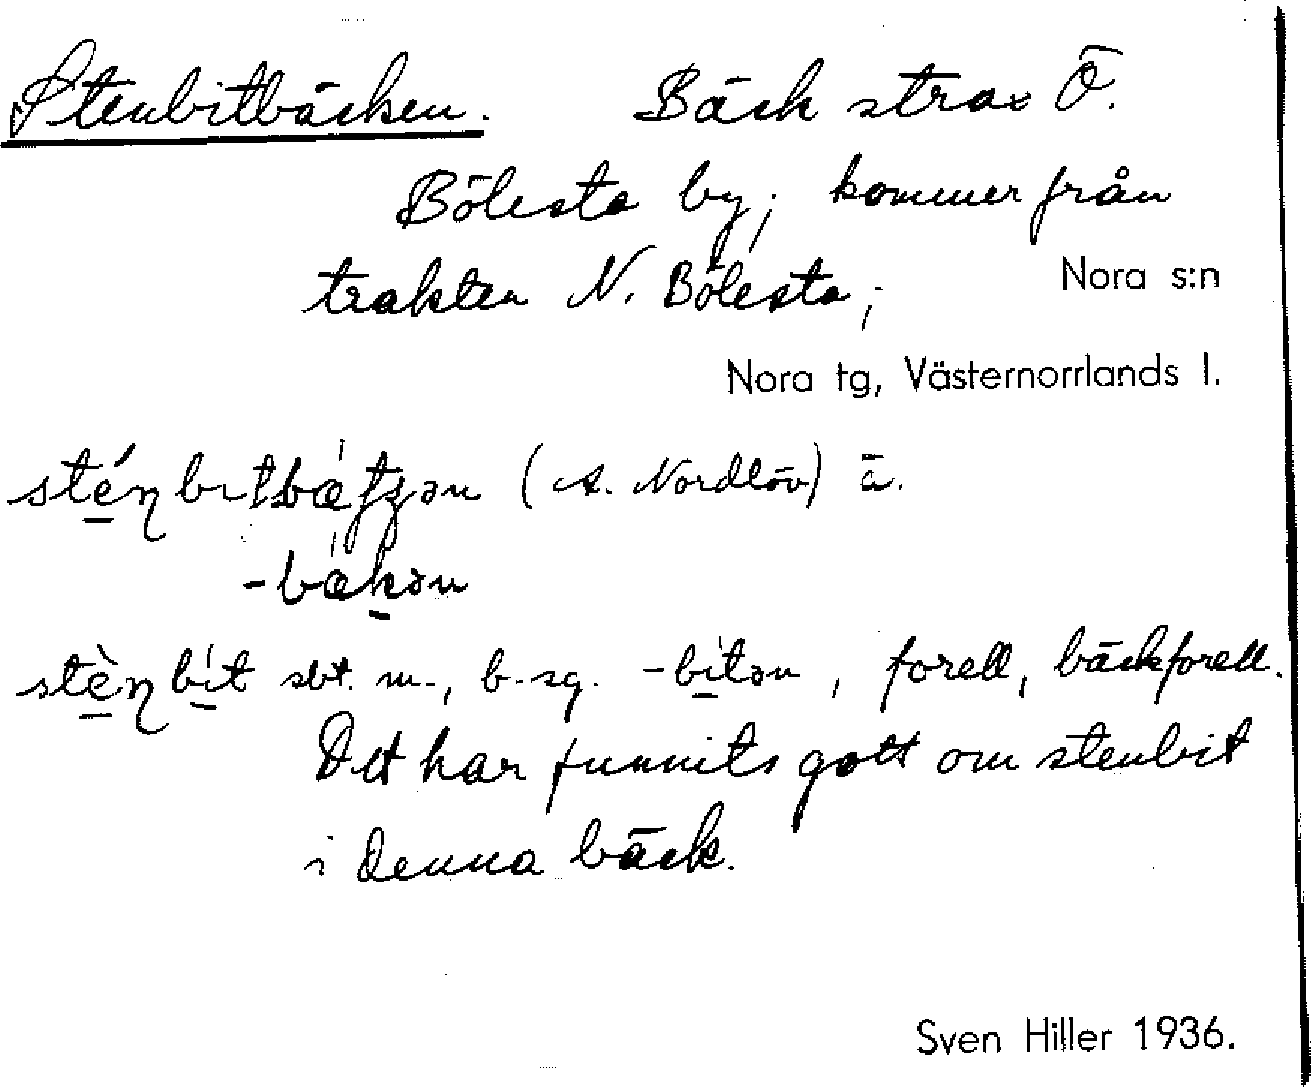 Stenbitbäcken. Bäck strax Ö.
Bölesta by; kommer från
trakten N. Bölesta;
Nora s:n
Nora tg, Västernorrlands l.
(A. Nordlöv) ä.
sbt. m., b. sg. , forell, bäckforell.
Det har funnits gott om stenbit
i denna bäck.
Sven Hiller 1936.